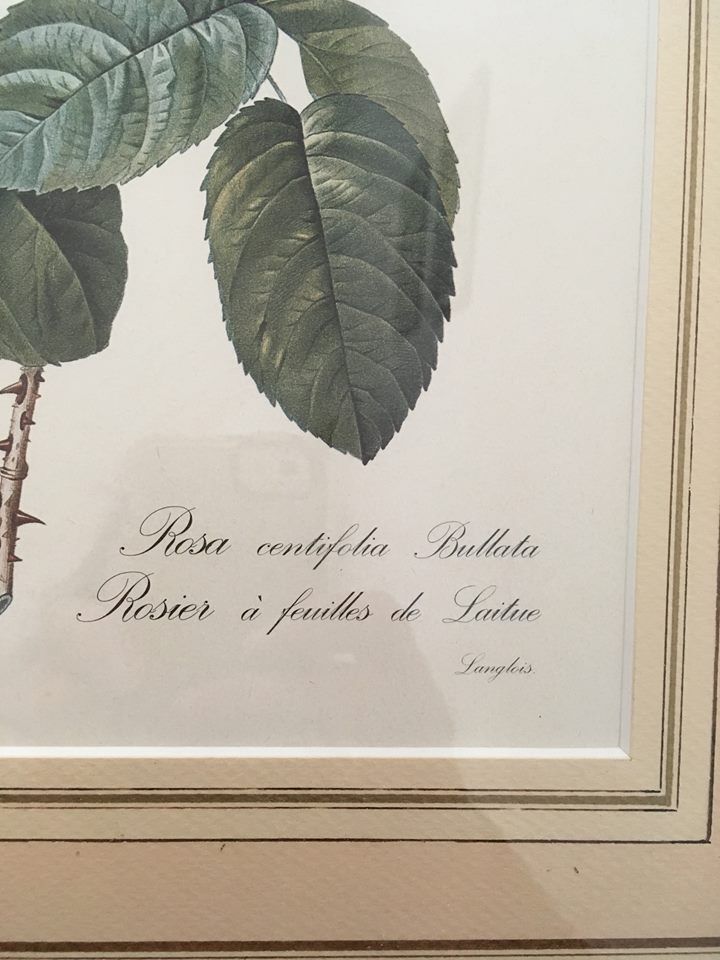 Rosa centifolia Bullata
Rosier à feuilles de Laitue
Langlois.